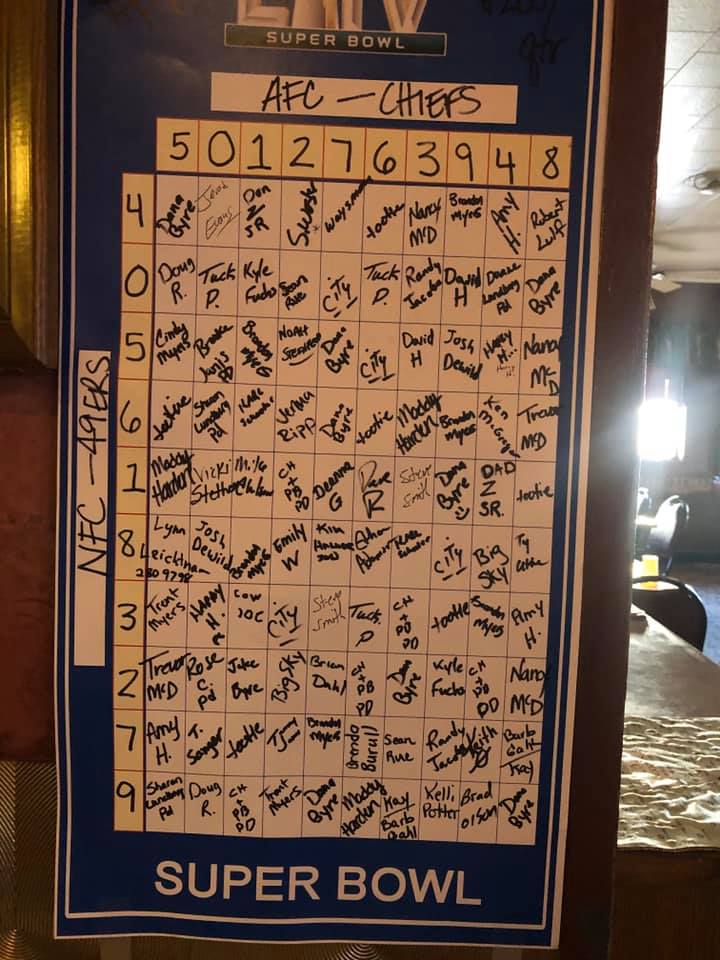 LIV
SUPER BOWL
AFC - CHIEFS
NFC - 49ERS
5 0 1 2 7 6 3 9 4 8
4 Dana Byre Don Z SR tootie Nancy McD Brandon Myers Amy H. Robert
0 Doug R. Tuck P. Kyle Fuchs Sean Rue CiTy Tuck P. Randy Jacobs David H Duane Lundberg Pd Dana Byre
5 Cindy Myers Brooke PD Brandon Myers NOAH Dana Byre CiTy David H Josh Dewild HARRY H... Nancy McD
6 tootie Sharon Lundberg Pd Jenna RIPP Dana Byre tootie Maddy Harden Brandon Myers Ken Trevor McD
1 Maddy Harden Vicki CH + PB PD Deanna G Dave R Steve Smith Dana Byre DAD Z SR. tootie
8 Lynn Leichtnam 280 9798 Josh Dewild Brandon Myers Emily W Kim CiTy Big SKY Ty
3 Trent Myers HARRY H. COW DOC CiTy Steve Smith Tuck P CH + PB PD tootie Brandon Myers Amy H.
2 Trevor McD Rose C. Pd Jake Byre Big SKY Brian Dahl CH + PB PD Dana Byre Kyle Fuchs CH + PB PD Nancy McD
7 Amy H. T. tootie Brandon Myers Brenda Sean Rue Randy Jacobs Keith Barb Gahl Kay
9 Sharon Lundberg Pd Doug R. CH + PB PD Trent Myers Dana Byre Maddy Harden Kay Barb Gahl Kelli Potter Brad Olson Dana Byre
SUPER BOWL